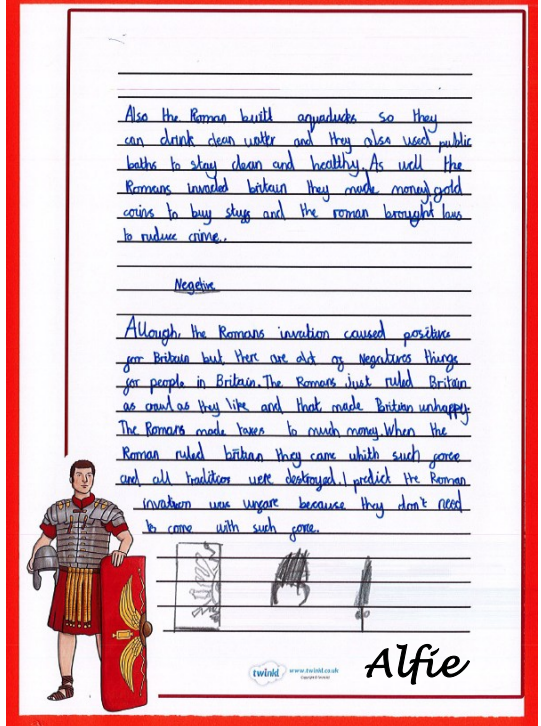 Also the Roman built aquaducks so they
can drink clean water and they also used public
baths to stay clean and healthy. As well the
Romans invaded britain they made money, gold
coins to buy stuff and the roman brought laws
to ruduce crime.
Negetive
Allough, the Romans invation caused positive
for Britain but, there are alot of Negatives things
for people in Britain. The Romans Just ruled Britain
as crawl as they like and that made Britain unhappy.
The Romans made taxes to much money. When the
Roman ruled britian they came whith such force
and all traditon were destroyed. I predict the Roman
invation was unfare because they don't need
to come with such force.
twinkl www.twinkl.co.uk
Alfie